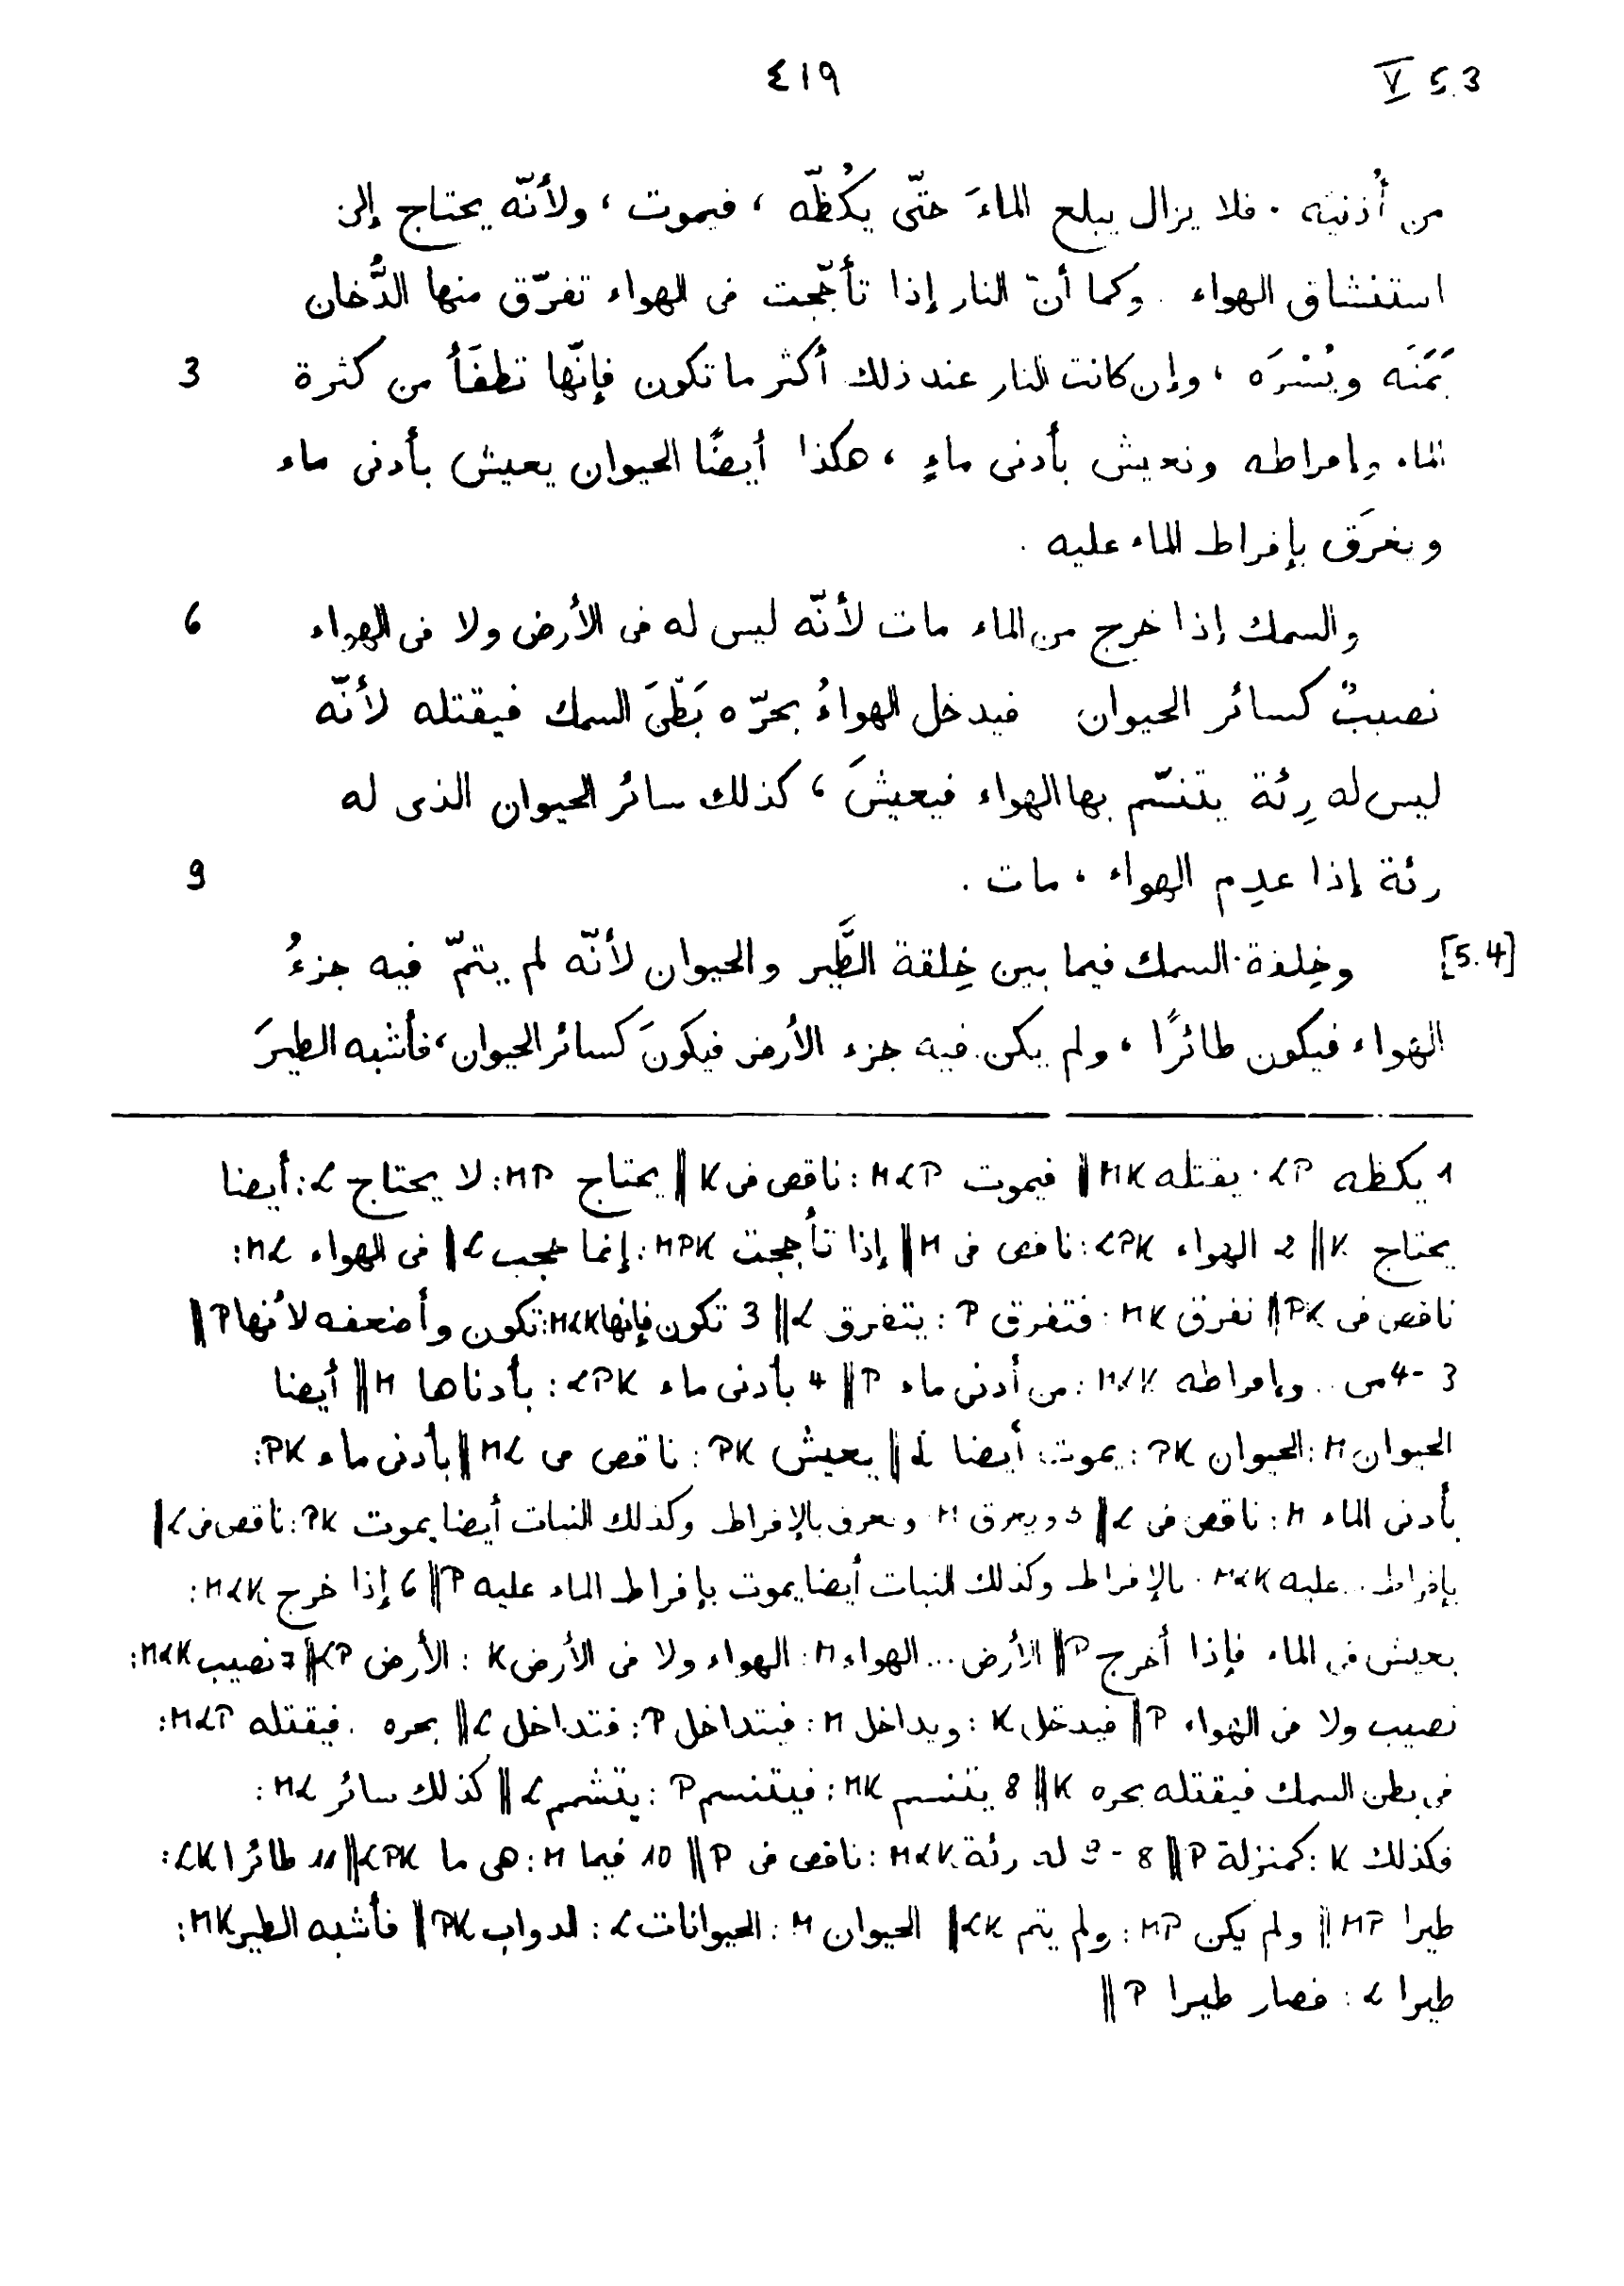 ٤١٩
V 5.3
من أُذنيه . فلا يزال يبلع الماءَ حتّى يكُظّه ، فيموت ، ولأنّه يحتاج إلى
استنشاق الهواء . وكما أنّ النار إذا تأجّجت فى الهواء تفرّق منها الدُّخان
يَمَنَه ويُسْرَه ، وإن كانت النار عند ذلك أكثر ما تكون فإنّها تطفَأ من كثرة 3
الماء وإفراطه وتعيش بأدنى ماءٍ ، هكذا أيضًا الحيوان يعيش بأدنى ماء
ويغرَق بإفراط الماء عليه .
والسمك إذا خرج من الماء مات لأنّه ليس له فى الأرض ولا فى الهواء 6
نصيبٌ كسائر الحيوان فيدخل الهواءُ بحرّه بَطْنَ السمك فيقتله لأنّه
ليس له رِئة يتنسّم بها الهواء فيعيشَ ، كذلك سائر الحيوان الذى له
رئة إذا عدِم الهواء ، مات . 9
[5.4] وخِلقة السمك فيما بين خِلقة الطَّير والحيوان لأنّه لم يتمّ فيه جزءُ
الهواء فيكون طائرًا ، ولم يكن فيه جزء الأرض فيكونَ كسائر الحيوان ، فأشبه الطيرَ
1 يكظه LP : يقتله MK || فيموت MLP : ناقص فى K || يحتاج MP : لا يحتاج L : أيضا
يحتاج K || 2 الهواء LPK : ناقص فى M || إذا تأججت MPK : إنما L || فى الهواء ML :
ناقص فى PK || تفرق MK : فتفرق P : يتفرق L || 3 تكون فإنها MLK : تكون وأضعفه لأنها P ||
3 - 4 من .. وإفراطه MLK : من أدنى ماء P || 4 بأدنى ماء LPK : بأدناها M || أيضا
الحيوان M : الحيوان PK : يموت أيضا L || يعيش PK : ناقص فى ML || بأدنى ماء PK :
بأدنى الماء M : ناقص فى L || 5 ويغرق M ويغرق بالإفراط وكذلك النبات أيضا يموت PK : ناقص فى L ||
بإفراط .. عليه MLK : بالإفراط وكذلك النبات أيضا يموت بإفراط الماء عليه P || 6 إذا خرج MLK :
يعيش فى الماء فإذا أخرج P || الأرض ... الهواء M : الهواء ولا فى الأرض K : الأرض LP || 7 نصيب MLK :
نصيب ولا فى الهواء P || فيدخل K : ويداخل M : فيتداخل P : فتداخل L || بحره . فيقتله MLP :
فى بطن السمك فيقتله بحره K || 8 يتنسم MK : فيتنسم P : يتشمم L || كذلك سائر ML :
فكذلك K : كمنزلة P || 8 - 9 له رئة MLK : ناقص فى P || 10 فيما M : هى ما LPK || 11 طائرا LK :
طيرا MP || ولم يكن MP : ولم يتم LK || الحيوان M : الحيوانات L : الدواب PK || فأشبه الطير MK :
طيرا L : فصار طيرا P ||